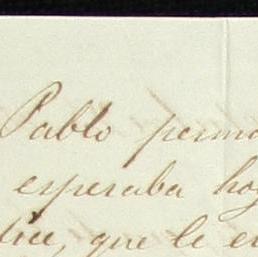 Pablo perma
esperaba hoy
dice, que le en